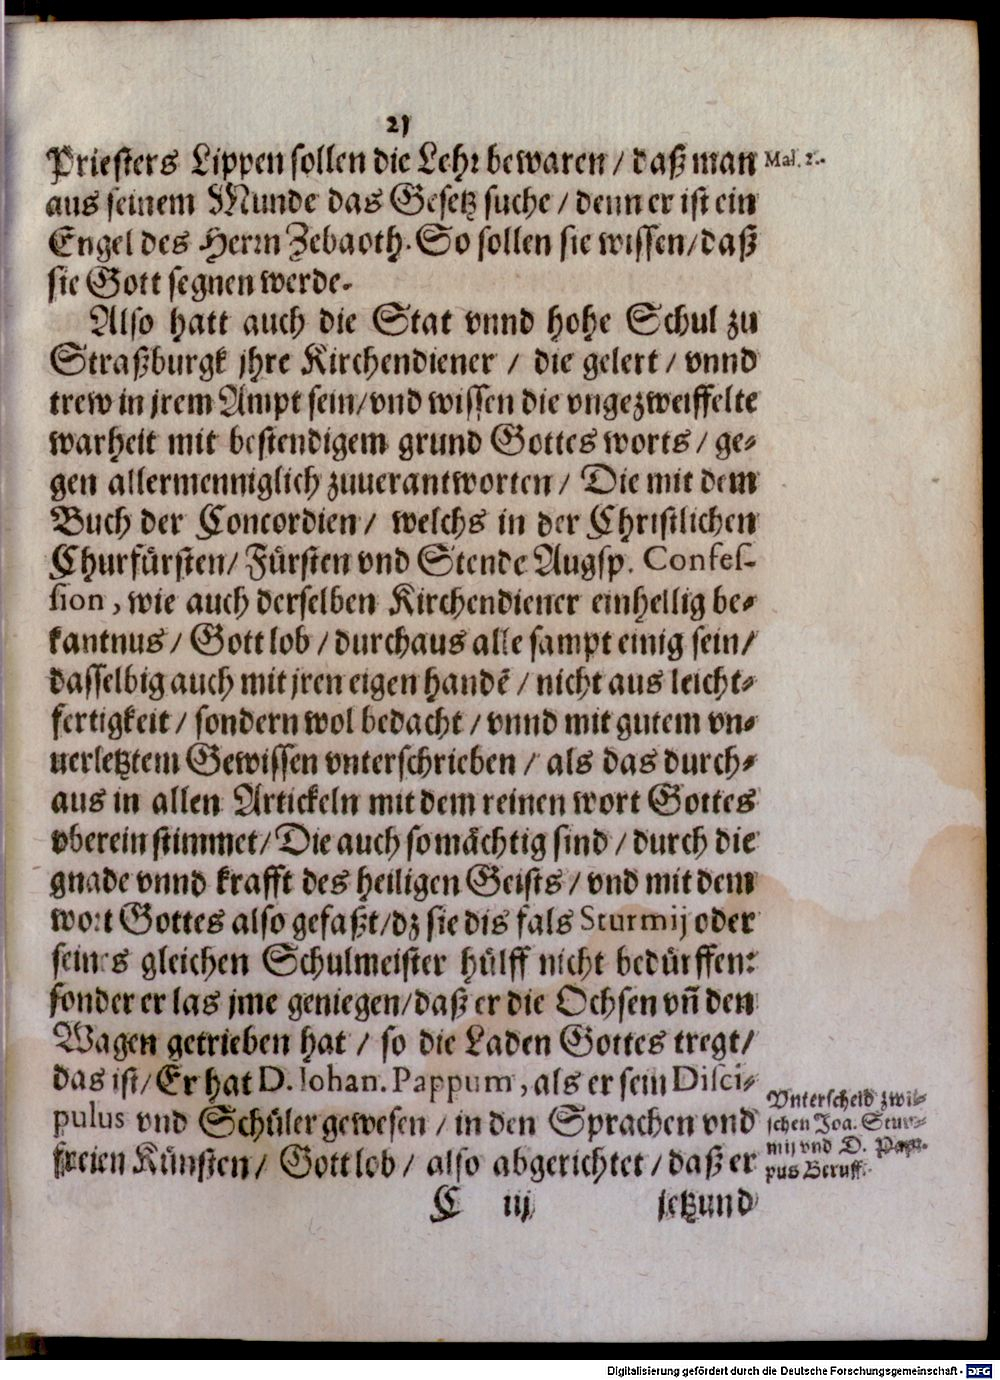 21
Priesters Lippen sollen die Lehr bewaren / daß man
Mal. 2.
aus seinem Munde das Gesetz suche / denn er ist ein
Engel des Herrn Zebaoth. So sollen sie wissen / daß
sie Gott segnen werde.
Also hatt auch die Stat vnnd hohe Schul zu
Straßburgk jhre Kirchendiener / die gelert / vnnd
trew in jrem Ampt sein / vnd wissen die vngezweiffelte
warheit mit bestendigem grund Gottes worts / ge-
gen allermenniglich zuuerantworten / Die mit dem
Buch der Concordien / welchs in der Christlichen
Churfürsten / Fürsten vnd Stende Augsp. Confes-
sion, wie auch derselben Kirchendiener einhellig be-
kantnus / Gott lob / durchaus alle sampt einig sein /
dasselbig auch mit jren eigen handē / nicht aus leicht-
fertigkeit / sondern wol bedacht / vnnd mit gutem vn-
uerletztem Gewissen vnterschrieben / als das durch-
aus in allen Artickeln mit dem reinen wort Gottes
vberein stimmet / Die auch so mächtig sind / durch die
gnade vnnd krafft des heiligen Geists / vnd mit dem
wort Gottes also gefaßt / dz sie dis fals Sturmij oder
seines gleichen Schulmeister hülff nicht bedürffen:
sonder er las jme geniegen / daß er die Ochsen vn̄ den
Wagen getrieben hat / so die Laden Gottes tregt /
das ist / Er hat D. Iohan. Pappum, als er sein Disci-
pulus vnd Schüler gewesen / in den Sprachen vnd
freien Künsten / Gott lob / also abgerichtet / daß er
Vnterscheid zwi-
schen Joa. Stur-
mij vnd D. Pap-
pus Beruff.
C iij jetzund
Digitalisierung gefördert durch die Deutsche Forschungsgemeinschaft - DFG